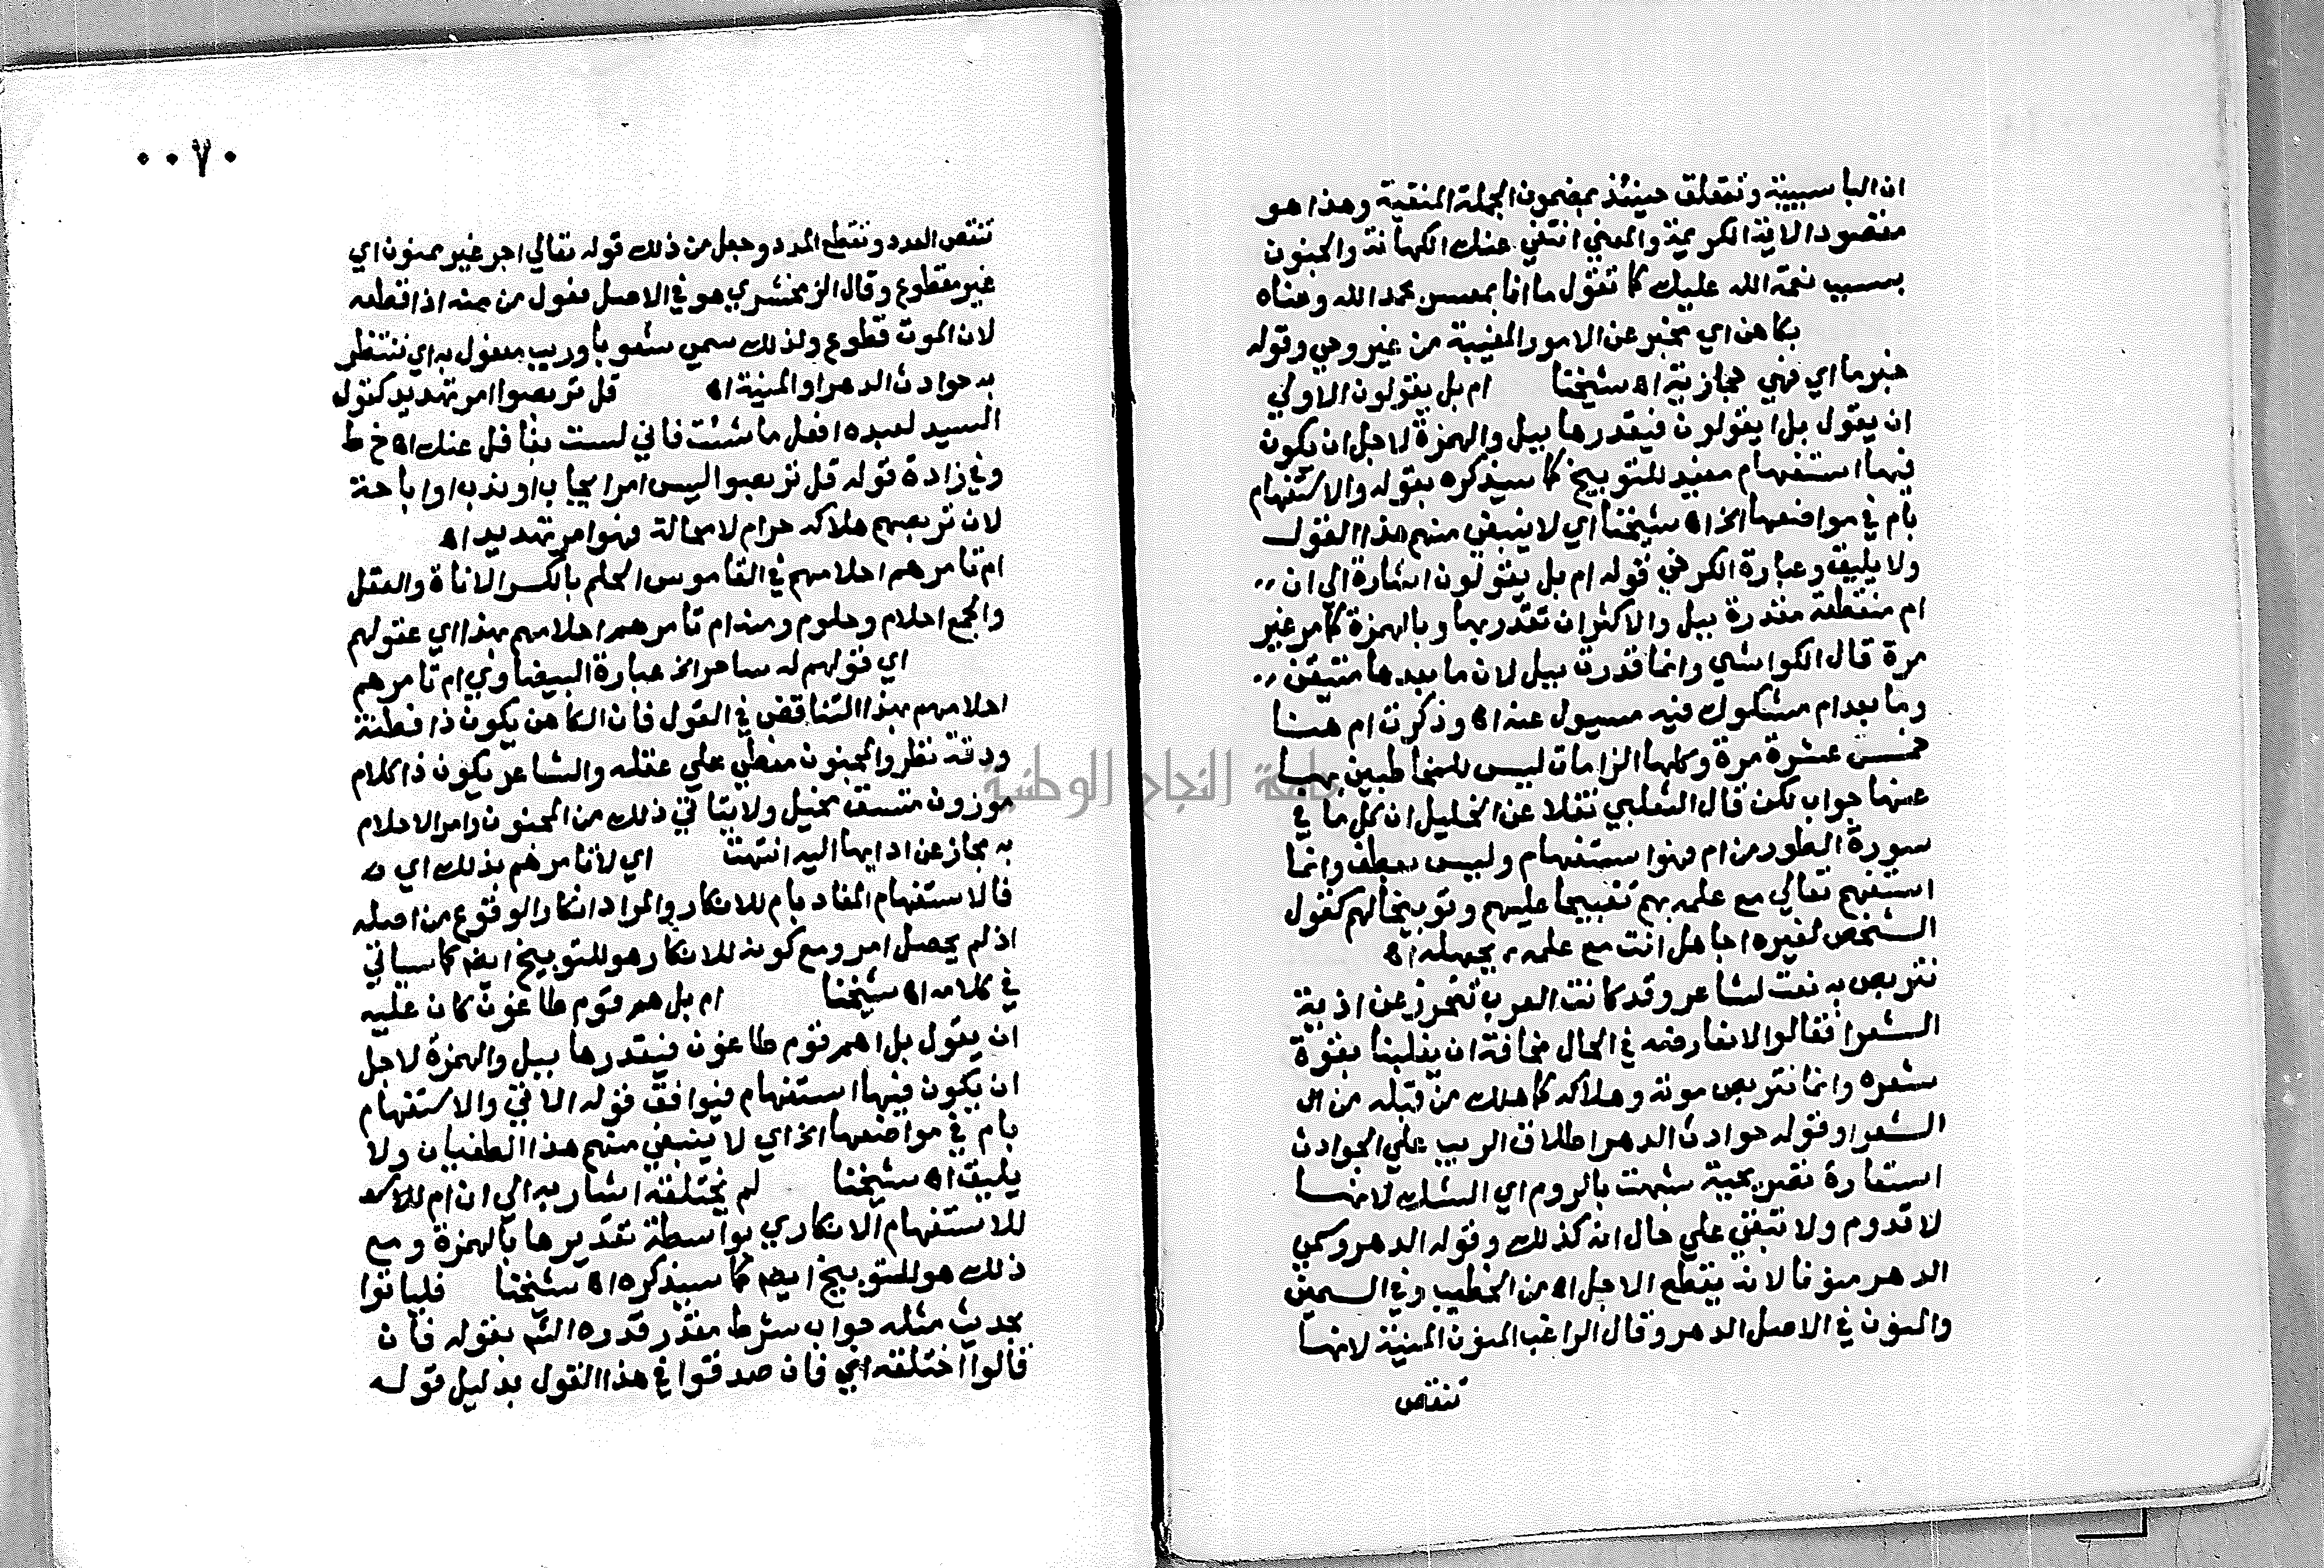 ان البا سببية وتتعلق حينئذ بمضمون الجملة المنفية وهذا هو
مقصود الاية الكريمة والمعني انتفي عنك الكهانة والجنون
بسبب نعمة الله عليك كما تقول ما انا بمعسر بحمد الله وغناه
بكاهن اي مخبر عن الامور المغيبة من غير وحي وقوله
خبر ما اي فهي حجازية اه شيخنا ام بل يقولون الاولي
ان يقول بل ايقولون فيقدرها ببل والهمزة لاجل ان يكون
فيها استفهام مفيد للتوبيخ كما سيذكره بقوله والاستفهام
بام في مواضعها الخ اه شيخنا اي لا ينبغي منهم هذا القول
ولا يليق وعبارة الكرخي قوله ام بل يقولون اشارة الي ان
ام منقطعة مقدرة ببل والاكثر ان تقدر بها وبالهمزة كما مر غير
مرة قال الكواشي وانما قدرت ببل لان ما بعدها متيقن
وما بعد ام مشكوك فيه مسيول عنه اه وذكرت ام هنا
خمس عشرة مرة وكلها الزامات ليس للمخاطبين بها
عنها جواب لكن قال الثعلبي نقلا عن الخليل ان كل ما في
سورة الطور من ام فهوا ستفهام وليس بعطف وانما
استفهم تعالي مع علمه بهم تقبيحا عليهم وتوبيخا لهم كقول
الشخص لغيره اجاهل انت مع علمه بجهله اه
نتربص به نعت لشاعر وقد كانت العرب تتحرز عن اذية
الشعرا فقالوا لا نعارضه في الحال مخافة ان يغلبنا بقوة
شعره وانما نتربص موته وهلاكه كما هلك من قبله من ال
الشعرا وقوله حوادث الدهر اطلاق الريب علي الحوادث
استعارة تصريحية شبهت بالريب اي الشك لانها
لا تدوم ولا تبقي علي حال انه كذلك وقوله الدهر وسمي
الدهر منونا لانه يقطع الاجل اه من الخطيب وفي السمين
والمنون في الاصل الدهر وقال الراغب المنون المنية لانها
تنقص
٠٠٧٠
تنقص العدد وتقطع المدد وجعل من ذلك قوله تعالي اجر غير ممنون اي
غير مقطوع وقال الزمخشري هو في الاصل فعول من منه اذا قطعه
لان الموت قطوع ولذلك سمي شعوبا وريب مفعول به اي ننتظر
به حوادث الدهر او المنية اه قل تربصوا امر تهديد كقول
السيد لعبده افعل ما شئت فاني لست بغافل عنك اه خ ط
وفي زادة قوله قل تربصوا ليس امر ايجاب او ندب او اباحة
لان تربصهم هلاكه حرام لا محالة فهوا مر تهديد اه
ام تامرهم احلامهم في القاموس الحلم بالكسر الاناة والعقل
والجمع احلام وحلوم ومنه ام تامرهم احلامهم بهذا اي عقولهم
اي قولهم له ساحر الخ عبارة البيضاوي ام تامرهم
احلامهم بهذا التناقض في القول فان الكاهن يكون ذا فطنة
ودقة نظر والمجنون مغطي علي عقله والشاعر يكون ذا كلام
موزون متسق مخيل ولا يتاتي ذلك من المجنون وامر الاحلام
به مجاز عن ادايها اليه انتهت اي لا تامرهم بذلك اي
فالاستفهام المفاد بام للانكار والمراد انكار الوقوع من اصله
اذ لم يحصل امر ومع كونه للانكار هو للتوبيخ ايضا كما سياتي
في كلامه اه شيخنا ام بل هم قوم طاغون كان عليه
ان يقول بل اهم قوم طاغون فيقدرها ببل والهمزة لاجل
ان يكون فيها استفهام فيوافق قوله الاتي والاستفهام
بام في مواضعها الخ اي لا ينبغي منهم هذا الطغيان ولا
يليق اه شيخنا لم يختلقه اشار به الي ان ام
للاستفهام الانكاري بواسطة تقديرها بالهمزة ومع
ذلك هو للتوبيخ ايضا كما سيذكره اه شيخنا فلياتوا
بحديث مثله جواب شرط مقدر قدره الشم بقوله فان
قالوا اختلقه اي فان صدقوا في هذا القول بدليل قوله
جامعة النجاح الوطنية